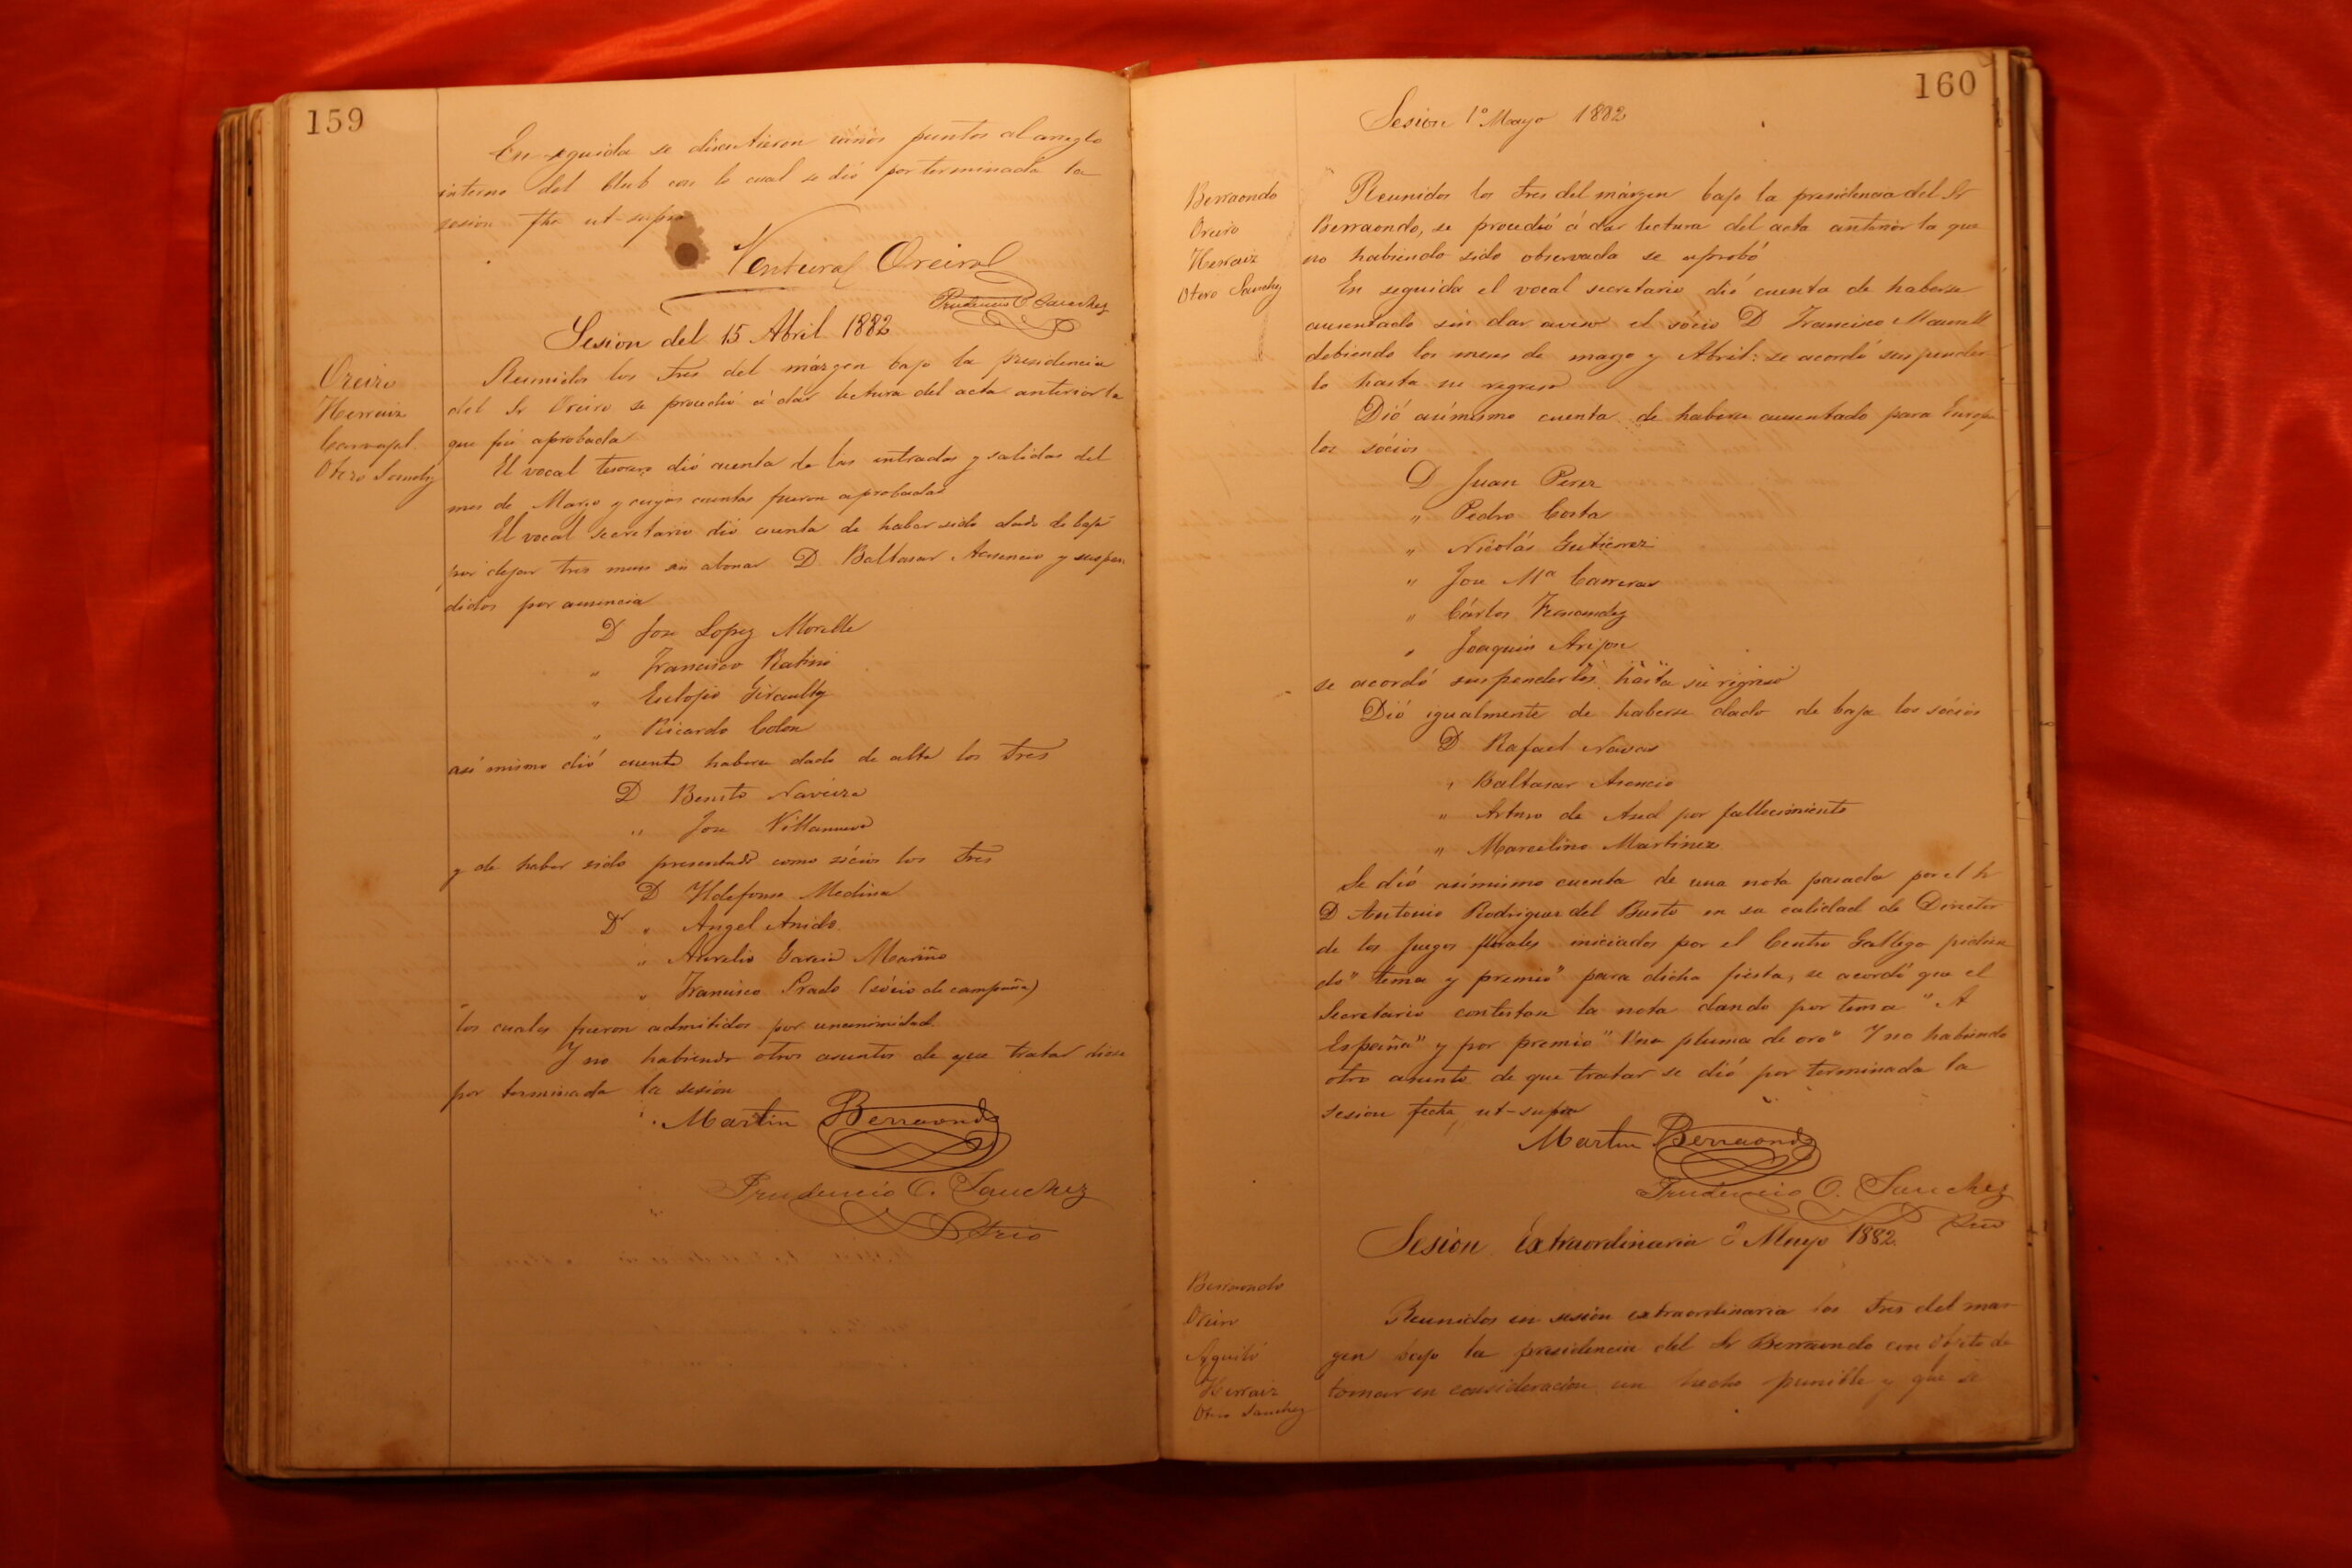 159
En seguida se discutieron varios puntos al arreglo
interno del Club con lo cual se dió por terminada la
sesion fha ut-supra
Ventura Oreiro
Prudencio O. Sanchez
Sesion del 15 Abril 1882
Oreiro
Herraiz
Carvajal
Otero Sanchez
Reunidos los Sres del márgen bajo la presidencia
del Sr Oreiro se procedió á dar lectura del acta anterior la
que fué aprobada
El vocal tesorero dió cuenta de las entradas y salidas del
mes de Marzo y cuyas cuentas fueron aprobadas
El vocal secretario dió cuenta de haber sido dado de baja
por dejar tres meses sin abonar D. Baltasar Asencio y suspen
didos por ausencia
D Jose Lopez Morelle
" Francisco
" Eulogio
" Ricardo Colon
asi mismo dió cuenta haberse dado de alta los Sres
D Benito Naveira
" Jose Villanueva
y de haber sido presentado como sócios los Sres
D Yldefonso Medina
D " Angel Anido
" Aurelio Garcia Mariño
" Francisco Prado (sócio de campaña)
los cuales fueron admitidos por unanimidad.
Y no habiendo otros asuntos de que tratar diose
por terminada la sesion
Martin Berraondo
Prudencio O. Sanchez
Strio
160
Sesion 1º Mayo 1882
Berraondo
Oreiro
Herraiz
Otero Sanchez
Reunidos los Sres del márgen bajo la presidencia del Sr
Berraondo, se procedió á dar lectura del acta anterior la que
no habiendo sido observada se aprobó
En seguida el vocal secretario dió cuenta de haberse
ausentado sin dar aviso el sócio D Francisco
debiendo los meses de marzo y Abril: se acordó suspender
lo hasta su regreso
Dió asimismo cuenta de haberse ausentado para Europa
los sócios
D Juan Perez
" Pedro Costa
" Nicolás Gutierrez
" Jose Mª Carreras
" Cárlos Fernandez
" Joaquin Arijon
se acordó suspenderlos hasta su regreso
Dió igualmente de haberse dado de baja los sócios
D Rafael Navas
" Baltasar Asencio
" Arturo de Ased por fallecimiento
" Marcelino Martinez
Se dió asimismo cuenta de una nota pasada por el Sr
D Antonio Rodriguez del Busto en su calidad de Director
de los Juegos florales iniciados por el Centro Gallego pidien
do "tema y premio" para dicha fiesta, se acordó que el
Secretario contestase la nota dando por tema "A
España" y por premio "Una pluma de oro" Y no habiendo
otro asunto de que tratar se dió por terminada la
sesion fecha ut-supra
Martin Berraondo
Prudencio O. Sanchez
Srio
Sesion Extraordinaria 2 Mayo 1882
Berraondo
Oreiro
Aguiló
Herraiz
Otero Sanchez
Reunidos en sesión extraordinaria los Sres del mar
gen bajo la presidencia del Sr Berraondo con objeto de
tomar en consideracion un hecho punible y que se